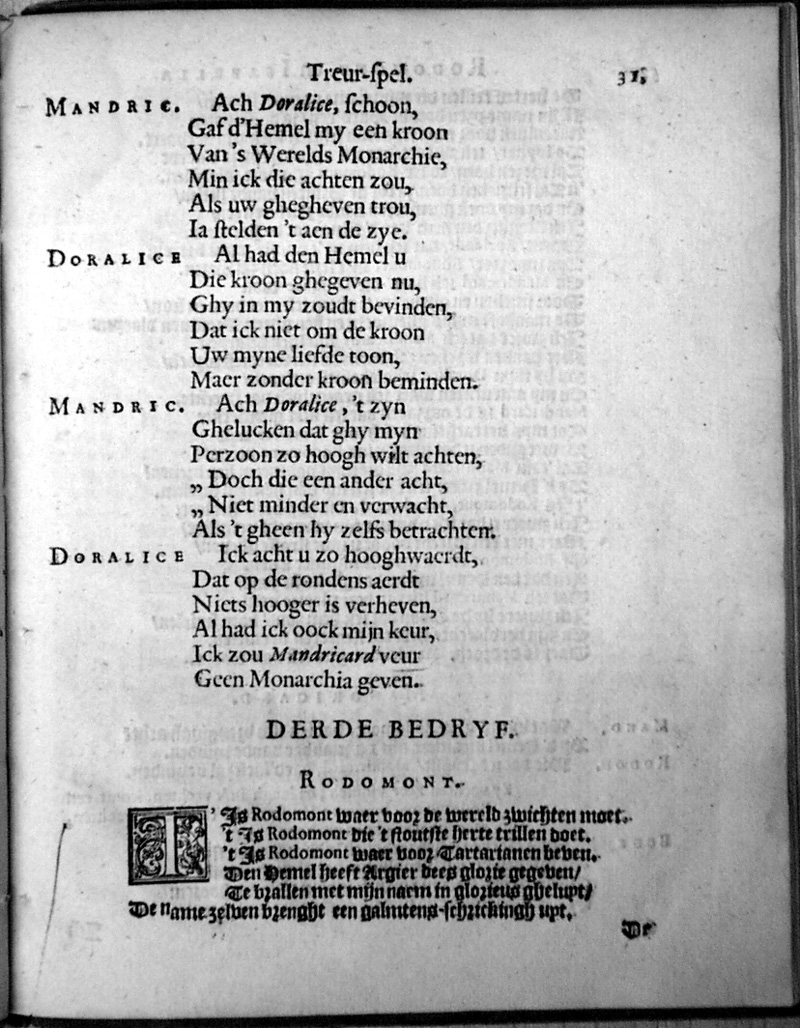 Treur-ſpel. 31.
MANDRIC. Ach Doralice, ſchoon,
Gaf d'Hemel my een kroon
Van 's Werelds Monarchie,
Min ick die achten zou,
Als uw ghegheven trou,
Ia ſtelden 't aen de zye.
DORALICE Al had den Hemel u
Die kroon ghegeven nu,
Ghy in my zoudt bevinden,
Dat ick niet om de kroon
Uw myne liefde toon,
Maer zonder kroon beminden.
MANDRIC. Ach Doralice, 't zyn
Ghelucken dat ghy myn
Perzoon zo hoogh wilt achten,
„ Doch die een ander acht,
„ Niet minder en verwacht,
Als 't gheen hy zelfs betrachten.
DORALICE Ick acht u zo hooghwaerdt,
Dat op de rondens aerdt
Niets hooger is verheven,
Al had ick oock mijn keur,
Ick zou Mandricard veur
Geen Monarchia geven.
DERDE BEDRYF.
RODOMONT.
T' Is Rodomont waer voor de wereld zwichten moet.
't Is Rodomont die 't ſtoutſte herte trillen doet.
't Is Rodomont waer voor Tartarianen beven.
Den Hemel heeft Argier dees glorie gegeven/
Te brallen met mijn narm in glorieus ghelupt/
De name zelven brenght een galmtens-ſchrickingh upt.
De